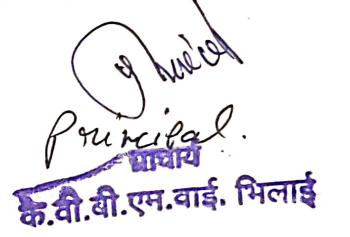 Principal.
प्राचार्य
के.वी.बी.एम.वाई. भिलाई